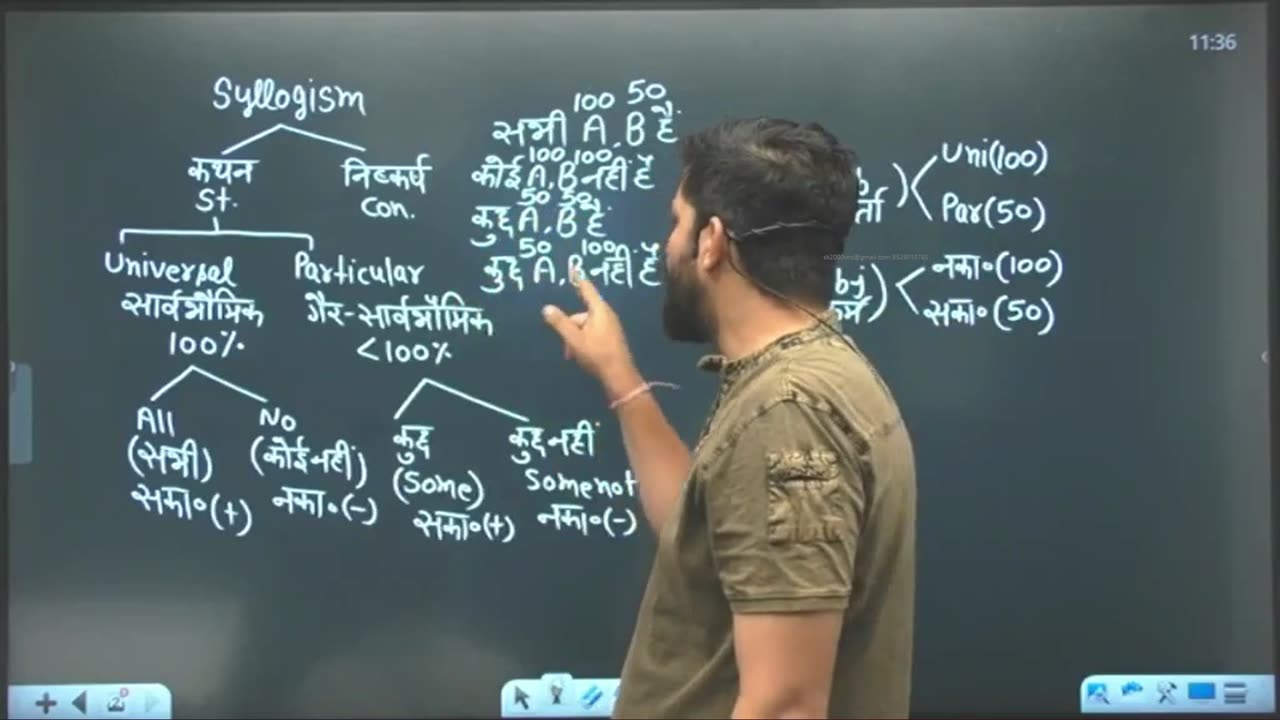 11:36
Syllogism
कथन
St.
निष्कर्ष
Con.
Universal
सार्वभौमिक
100%
Particular
गैर-सार्वभौमिक
<100%
All
(सभी)
सका०(+)
No
(कोई नहीं)
नका०(-)
कुछ
(Some)
सका०(+)
कुछ नहीं
Some not
नका०(-)
100 50
सभी A, B हैं.
100 100
कोई A, B नहीं हैं
50 50
कुछ A, B हैं.
50 100
कुछ A, B नहीं हैं
Uni(100)
Par(50)
नका०(100)
सका०(50)